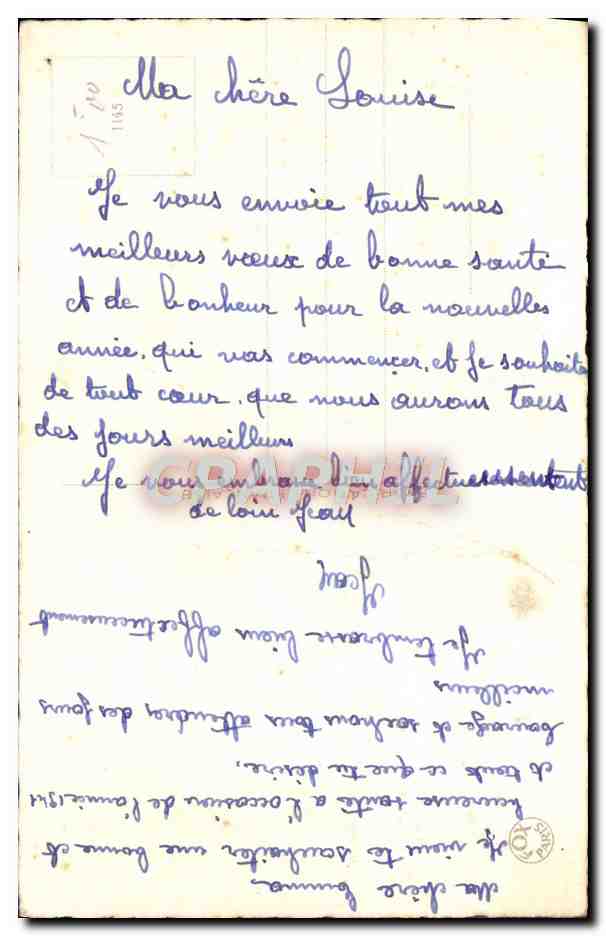 1 f 00
1165
Ma chère Louise
Je vous envoie tout mes
meilleurs vœux de bonne santé
et de bonheur pour la nouvelles
année, qui vas commençer, et je souhaite
de tout cœur, que nous aurons tous
des jours meilleurs
Je vous embrasse bien affectueusement
de loin Jean
CRAPHIL
Ma chère Emma
Je viens te souhaiter une bonne et
heureuse santé a l'occasion de l'année 1941
et tout ce que tu désire,
courage et sachons tous attendre des jours
meilleurs
Je t'embrasse bien affectueusement
Jean
PARIS